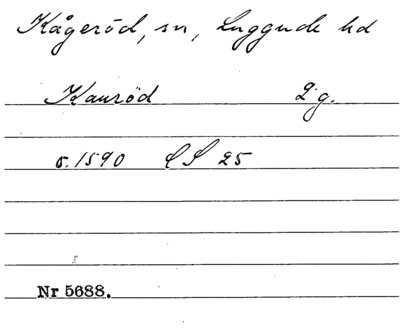 Kågeröd, sn, Luggude hd
Kauröd 2 g.
c. 1590 LS 25
Nr 5688.